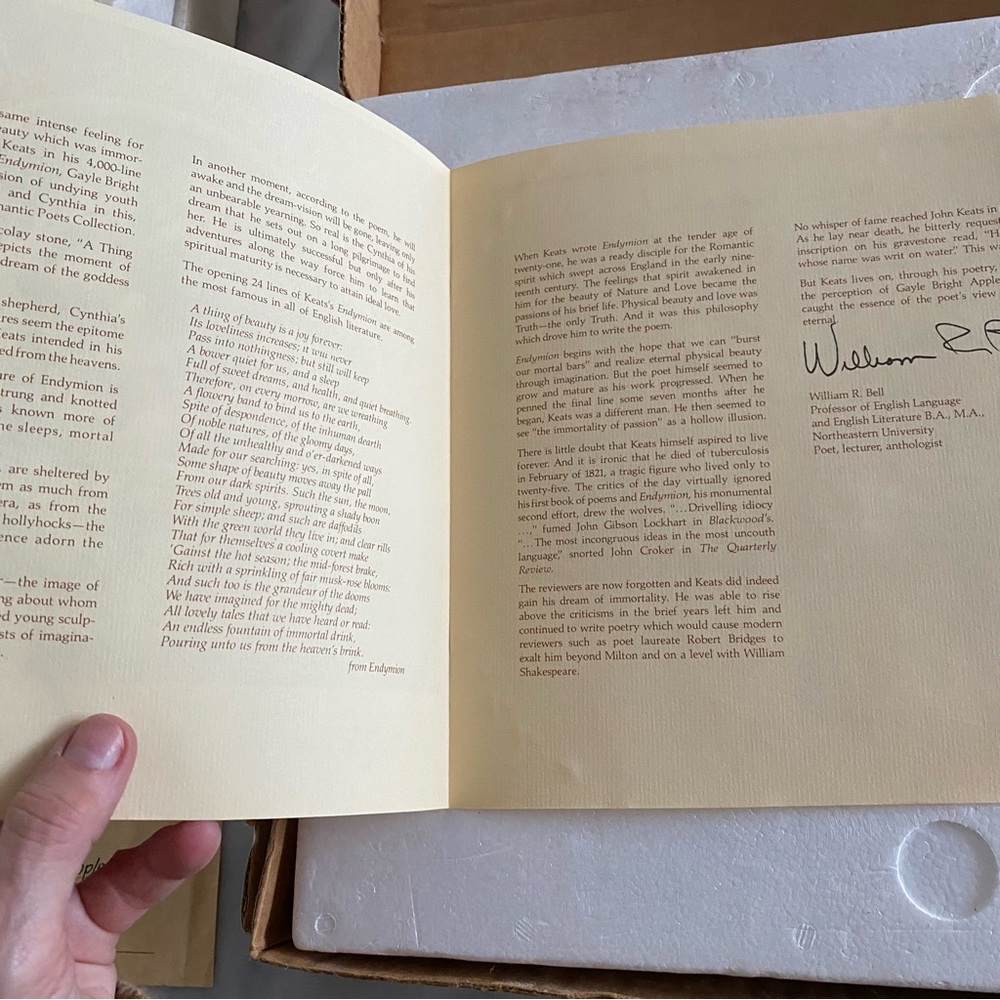 same intense feeling for
auty which was immor-
Keats in his 4,000-line
Endymion, Gayle Bright
sion of undying youth
and Cynthia in this,
mantic Poets Collection.
colay stone, “A Thing
epicts the moment of
dream of the goddess
shepherd, Cynthia’s
res seem the epitome
eats intended in his
ed from the heavens.
ure of Endymion is
trung and knotted
s known more of
he sleeps, mortal
are sheltered by
m as much from
era, as from the
hollyhocks—the
ence adorn the
—the image of
ng about whom
ed young sculp-
sts of imagina-
In another moment, according to the poem, he will
awake and the dream-vision will be gone, leaving only
an unbearable yearning. So real is the Cynthia of his
dream that he sets out on a long pilgrimage to find
her. He is ultimately successful but only after his
adventures along the way force him to learn that
spiritual maturity is necessary to attain ideal love.
The opening 24 lines of Keats’s Endymion are among
the most famous in all of English literature.
A thing of beauty is a joy forever:
Its loveliness increases; it will never
Pass into nothingness; but still will keep
A bower quiet for us, and a sleep
Full of sweet dreams, and health, and quiet breathing.
Therefore, on every morrow, are we wreathing
A flowery band to bind us to the earth,
Spite of despondence, of the inhuman dearth
Of noble natures, of the gloomy days,
Of all the unhealthy and o’er-darkened ways
Made for our searching: yes, in spite of all,
Some shape of beauty moves away the pall
From our dark spirits. Such the sun, the moon,
Trees old and young, sprouting a shady boon
For simple sheep; and such are daffodils
With the green world they live in; and clear rills
That for themselves a cooling covert make
’Gainst the hot season; the mid-forest brake,
Rich with a sprinkling of fair musk-rose blooms:
And such too is the grandeur of the dooms
We have imagined for the mighty dead;
All lovely tales that we have heard or read:
An endless fountain of immortal drink,
Pouring unto us from the heaven’s brink.
from Endymion
When Keats wrote Endymion at the tender age of
twenty-one, he was a ready disciple for the Romantic
spirit which swept across England in the early nine-
teenth century. The feelings that spirit awakened in
him for the beauty of Nature and Love became the
passions of his brief life. Physical beauty and love was
Truth—the only Truth. And it was this philosophy
which drove him to write the poem.
Endymion begins with the hope that we can “burst
our mortal bars” and realize eternal physical beauty
through imagination. But the poet himself seemed to
grow and mature as his work progressed. When he
penned the final line some seven months after he
began, Keats was a different man. He then seemed to
see “the immortality of passion” as a hollow illusion.
There is little doubt that Keats himself aspired to live
forever. And it is ironic that he died of tuberculosis
in February of 1821, a tragic figure who lived only to
twenty-five. The critics of the day virtually ignored
his first book of poems and Endymion, his monumental
second effort, drew the wolves. “...Drivelling idiocy
...,” fumed John Gibson Lockhart in Blackwood’s.
“...The most incongruous ideas in the most uncouth
language,” snorted John Croker in The Quarterly
Review.
The reviewers are now forgotten and Keats did indeed
gain his dream of immortality. He was able to rise
above the criticisms in the brief years left him and
continued to write poetry which would cause modern
reviewers such as poet laureate Robert Bridges to
exalt him beyond Milton and on a level with William
Shakespeare.
No whisper of fame reached John Keats in
As he lay near death, he bitterly reques
inscription on his gravestone read, “H
whose name was writ on water.” This w
But Keats lives on, through his poetry,
the perception of Gayle Bright Apple
caught the essence of the poet’s view
eternal.
William R. B
William R. Bell
Professor of English Language
and English Literature B.A., M.A.,
Northeastern University
Poet, lecturer, anthologist